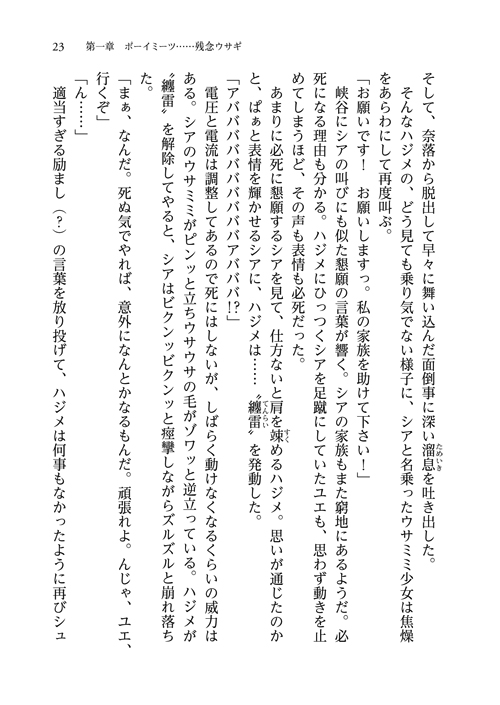 23　第一章　ボーイミーツ……残念ウサギ
そして、奈落から脱出して早々に舞い込んだ面倒事に深い溜息を吐き出した。
そんなハジメの、どう見ても乗り気でない様子に、シアと名乗ったウサミミ少女は焦燥
をあらわにして再度叫ぶ。
「お願いです！　お願いしますっ。私の家族を助けて下さい！」
峡谷にシアの叫びにも似た懇願の言葉が響く。シアの家族もまた窮地にあるようだ。必
死になる理由も分かる。ハジメにひっつくシアを足蹴にしていたユエも、思わず動きを止
めてしまうほど、その声も表情も必死だった。
あまりに必死に懇願するシアを見て、仕方ないと肩を竦めるハジメ。思いが通じたのか
と、ぱぁと表情を輝かせるシアに、ハジメは……〝纏雷〟を発動した。
「アババババババババババアバババ!?」
電圧と電流は調整してあるので死にはしないが、しばらく動けなくなるくらいの威力は
ある。シアのウサミミがピンッと立ちウサウサの毛がゾワッと逆立っている。ハジメが
〝纏雷〟を解除してやると、シアはビクンッビクンッと痙攣しながらズルズルと崩れ落ち
た。
「まぁ、なんだ。死ぬ気でやれば、意外になんとかなるもんだ。頑張れよ。んじゃ、ユエ、
行くぞ」
「ん……」
適当すぎる励まし（？）の言葉を放り投げて、ハジメは何事もなかったように再びシュ